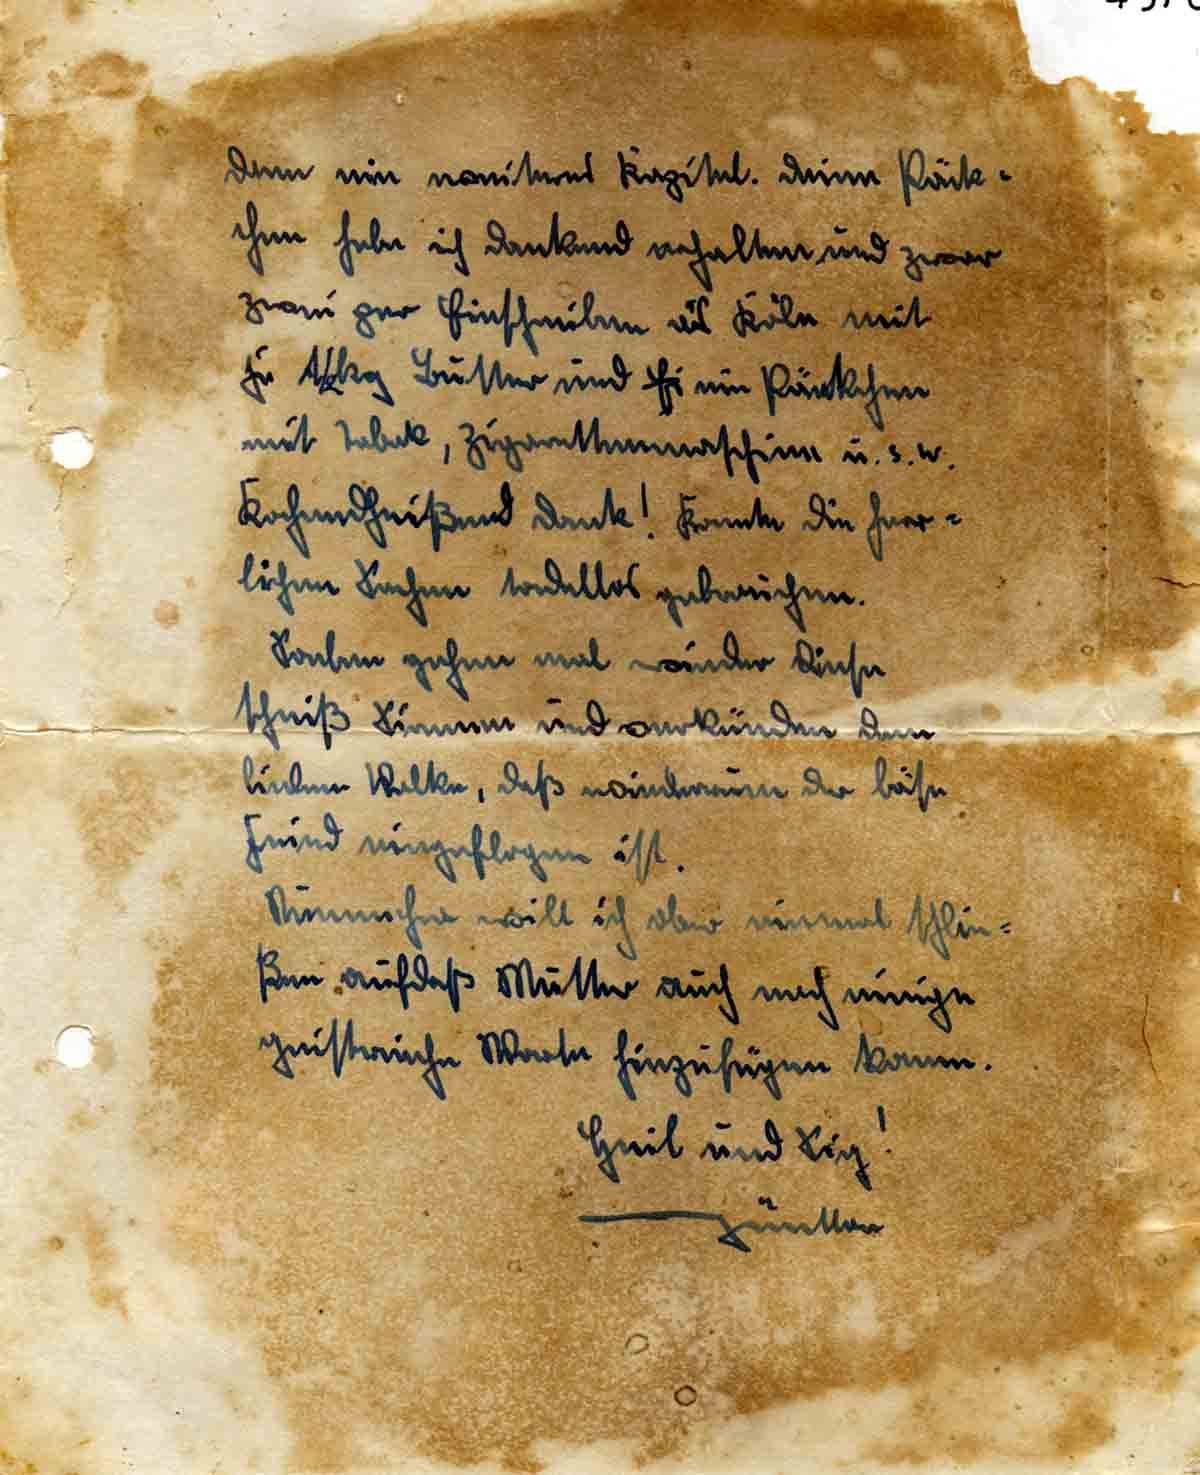 dem ein weiteres Kapitel. Deine Päck-
chen habe ich dankend erhalten und zwar
zwei per Einschreiben aus Köln mit
je 1/2 kg Butter und ein Päckchen
mit Tabak, Zigarettenmaschine u.s.w.
Kochendheißend Dank! Konnte die herr-
lichen Sachen tadellos gebrauchen.
Soeben gehen mal wieder diese
scheiß Sirenen und verkünden dem
lieben Volke, daß wiederum der böse
Feind eingeflogen ist.
Nunmehr will ich aber einmal schlie-
ßen aufdaß Mutter auch noch einige
geistreiche Worte hinzufügen kann.
Heil und Sieg!
Günther